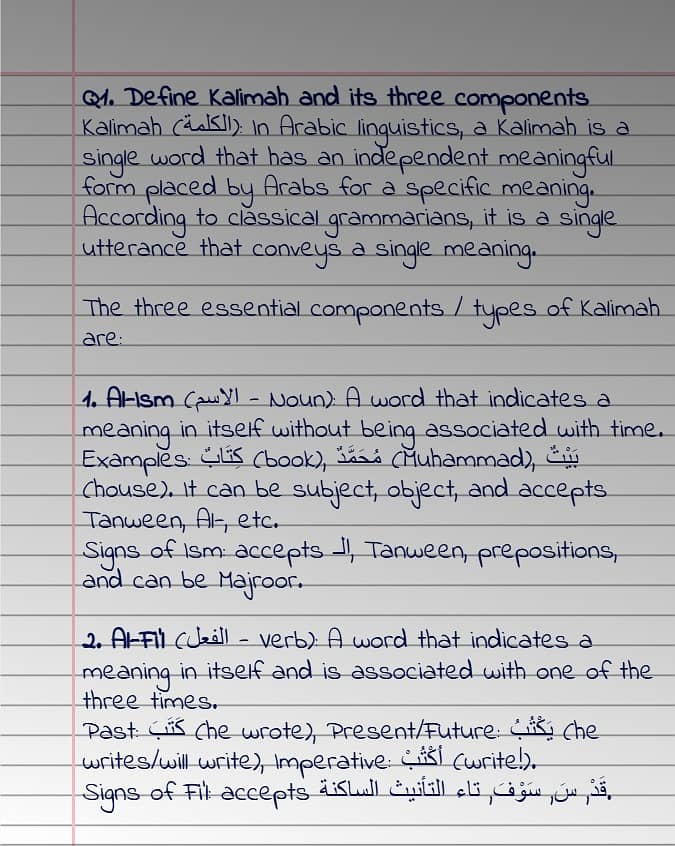 Q1. Define Kalimah and its three components
Kalimah (الكلمة): In Arabic linguistics, a Kalimah is a
single word that has an independent meaningful
form placed by Arabs for a specific meaning.
According to classical grammarians, it is a single
utterance that conveys a single meaning.
The three essential components / types of Kalimah
are:
1. Al-Ism (الاسم - Noun): A word that indicates a
meaning in itself without being associated with time.
Examples: كِتَابٌ (book), مُحَمَّدٌ (Muhammad), بَيْتٌ
(house). It can be subject, object, and accepts
Tanween, Al-, etc.
Signs of Ism: accepts الـ, Tanween, prepositions,
and can be Majroor.
2. Al-Fi'l (الفعل - Verb): A word that indicates a
meaning in itself and is associated with one of the
three times.
Past: كَتَبَ (he wrote), Present/Future: يَكْتُبُ (he
writes/will write), Imperative: اُكْتُبْ (write!).
Signs of Fi'l: accepts قَدْ, سَ, سَوْفَ, تاء التأنيث الساكنة.